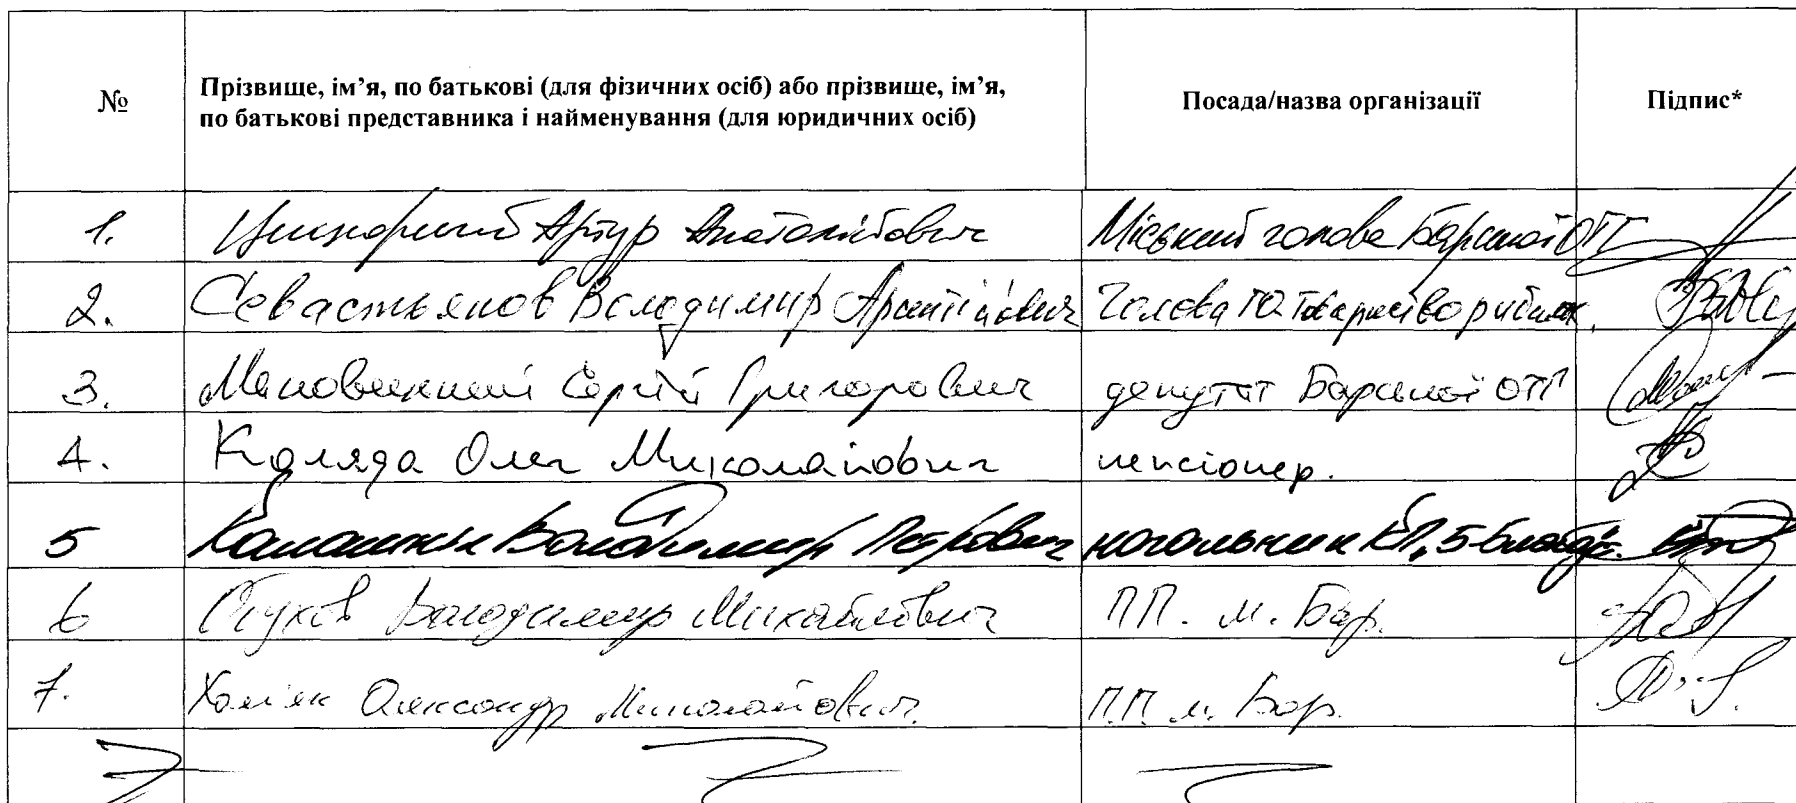 №
Прізвище, ім’я, по батькові (для фізичних осіб) або прізвище, ім’я,
по батькові представника і найменування (для юридичних осіб)
Посада/назва організації
Підпис*
1. Цицюрський Артур Анатолійович Міський голова Барської ОТГ
2. Севастьянов Володимир Голова
3. Сергій Григорович депутат Барської ОТГ
4. Коляда Олег Миколайович пенсіонер.
5 Володимир Петрович начальник КП
6 Володимир Михайлович ПП. м. Бар.
7. Хом'як Олександр Миколайович. П.П. м. Бар.